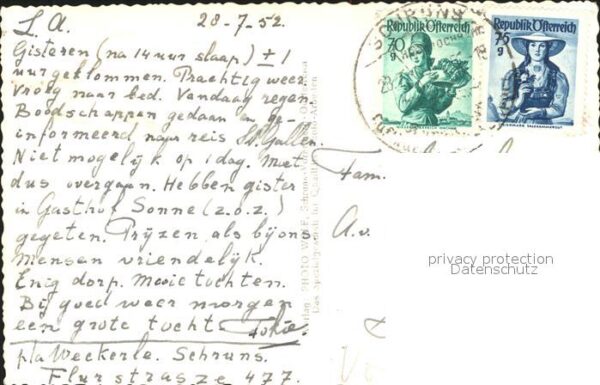 L.A. 28-7-52
Gisteren (na 14 uur slaap) ± 1
uur geklommen. Prachtig weer.
Vroeg naar bed. Vandaag regen
Boodschappen gedaan en ge-
informeerd naar reis St. Gallen.
Niet mogelijk op 1 dag. Moet
dus overgaan. Hebben gister
in Gasthof Sonne (z.o.z.)
gegeten. Prijzen als bij ons.
Mensen vriendelijk.
Enig dorp. Mooie tochten.
Bij goed weer morgen
een grote tocht
p/a Weckerle. Schruns.
Flurstrasze 477.
Republik Österreich
70 g
Republik Österreich
75 g
SCHRUNS
Fam.
A.v.
privacy protection
Datenschutz